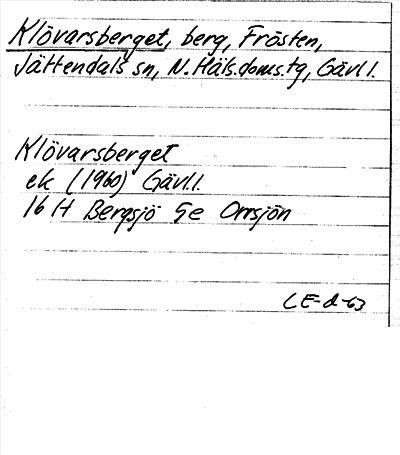 Klövarsberget, berg, Frösten,
Jättendals sn, N. Häls.doms.tg, Gävl l.
Klövarsberget
ek (1960) Gävl.l.
16 H Bergsjö 5e Orrsjön
CE-d-63